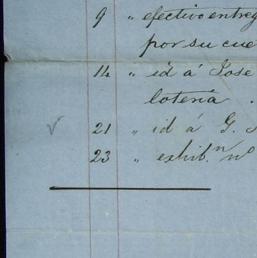 9 " efectivo entreg
por su cue
14 " id á Jose
loteria .
21 " id á G.
23 " exhib.n nº